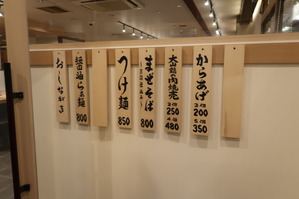 おしながき
醤油らぁ麺
800
つけ麺
850
まぜそば
800
肉焼売
2個
250
4個
480
からあげ
3個
200
5個
350